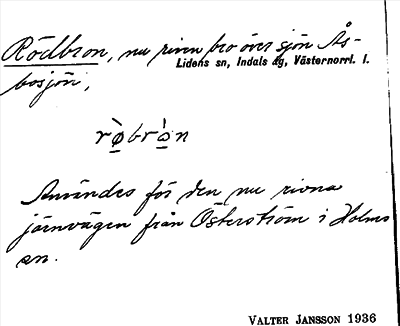 Rödbron, nu riven bro över sjön Ås-
Lidens sn, Indals tg, Västernorrl. l.
bosjön,
rø̀brò̱n
Användes för den nu rivna
järnvägen från Österström i Holms
sn.
VALTER JANSSON 1936